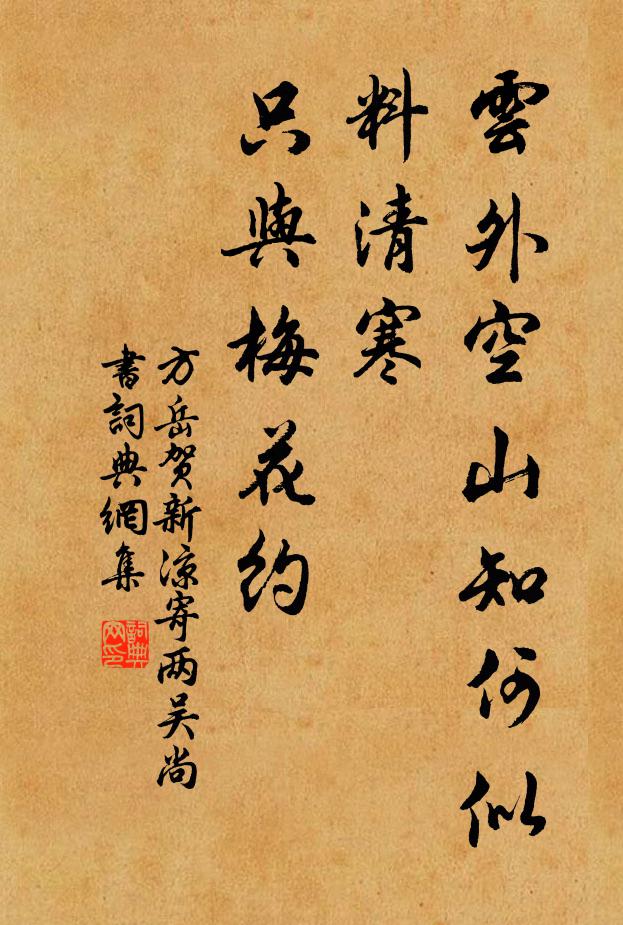 雲外空山知何似
料清寒
只與梅花約
方岳贺新凉寄两吴尚
書詞典網集
詞典
网印